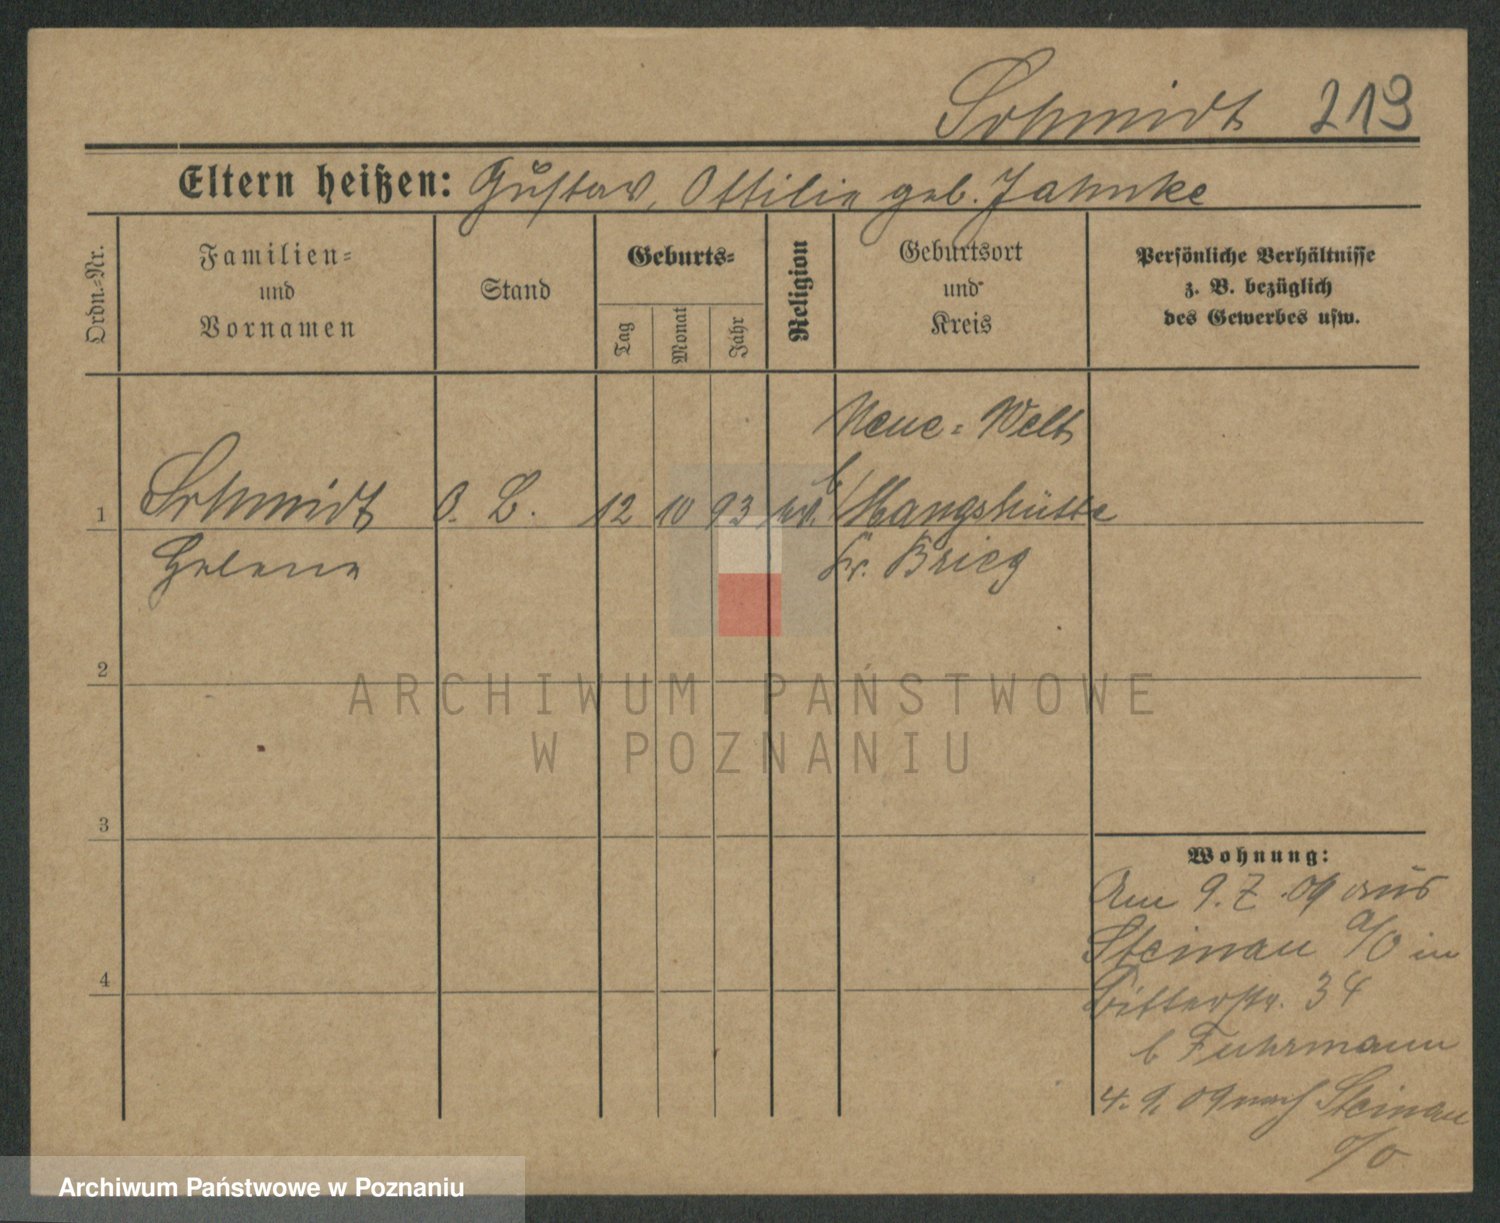 Schmidt 219
Eltern heißen: Gustav, Ottilie geb. Jahnke
Ordn.-Nr.
Familien-
und
Vornamen
Stand
Geburts-
Tag
Monat
Jahr
Religion
Geburtsort
und
Kreis
Persönliche Verhältnisse
z. B. bezüglich
des Gewerbes usw.
Neue-Welt
1 Schmidt 12 10 93 b/ Mangschütte
Helene Kr. Brieg
2
ARCHIWUM PAŃSTWOWE
W POZNANIU
3
Wohnung:
Am 9.7.09 aus
Steinau a/O in
34
4
b Fuhrmann
4.9.09 nach Steinau
a/O
Archiwum Państwowe w Poznaniu